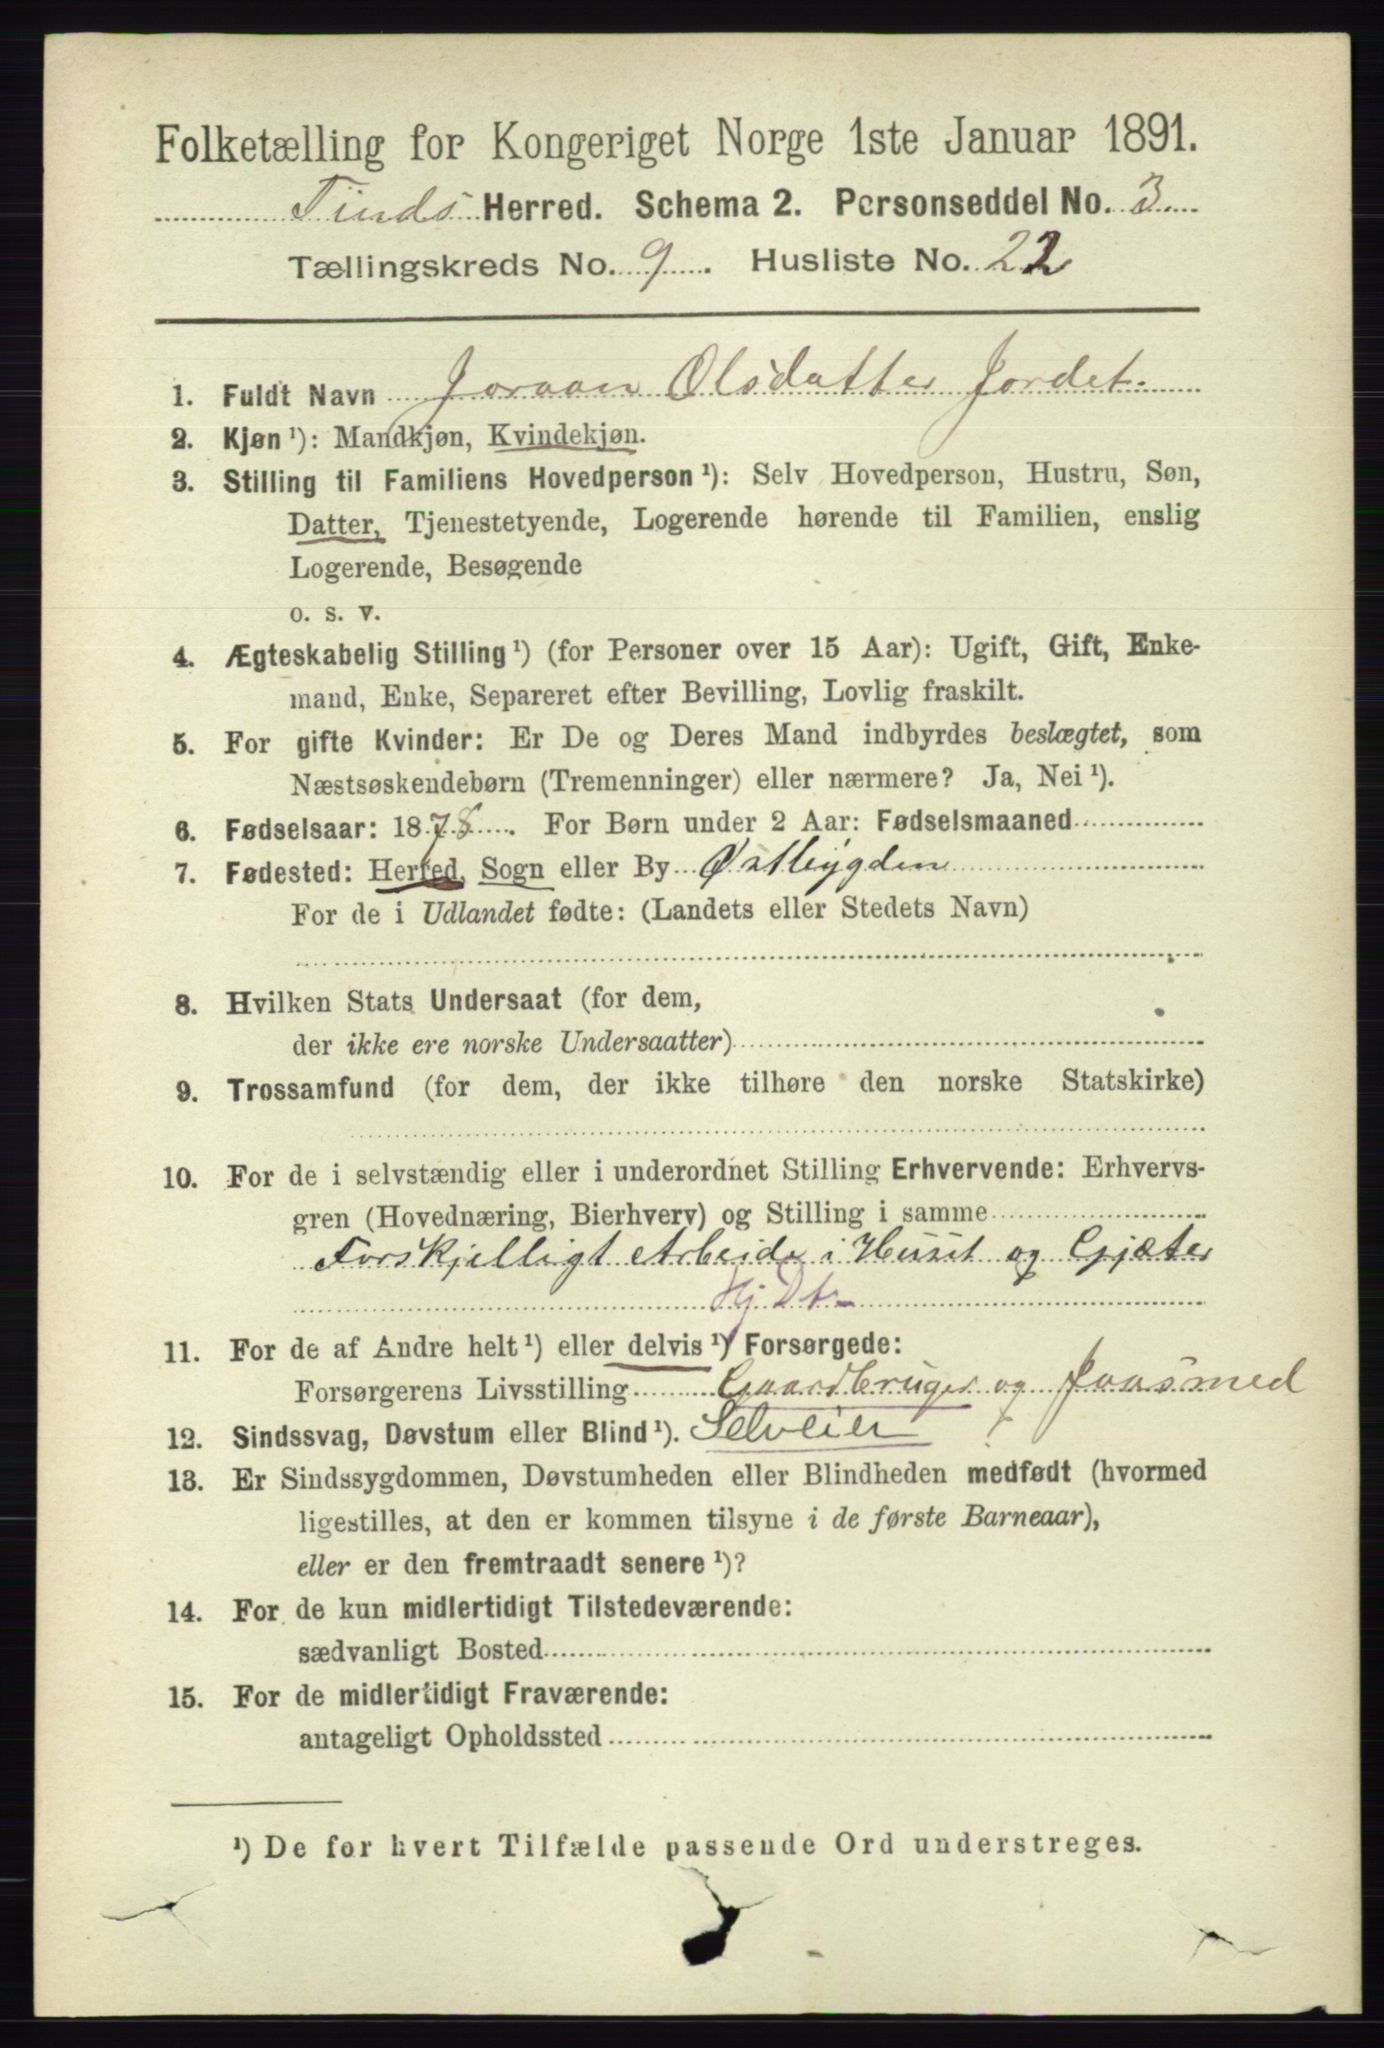 Folketælling for Kongeriget Norge 1ste Januar 1891.
Tinds Herred. Schema 2. Personseddel No. 3
Tællingskreds No. 9. Husliste No. 22
1. Fuldt Navn Joraan Olsdatter Jordet.
2. Kjøn ¹): Mandkjøn, Kvindekjøn.
3. Stilling til Familiens Hovedperson ¹): Selv Hovedperson, Hustru, Søn,
Datter, Tjenestetyende, Logerende hørende til Familien, enslig
Logerende, Besøgende
o. s. v.
4. Ægteskabelig Stilling ¹) (for Personer over 15 Aar): Ugift, Gift, Enke-
mand, Enke, Separeret efter Bevilling, Lovlig fraskilt.
5. For gifte Kvinder: Er De og Deres Mand indbyrdes beslægtet, som
Næstsøskendebørn (Tremenninger) eller nærmere? Ja, Nei ¹).
6. Fødselsaar: 1878. For Børn under 2 Aar: Fødselsmaaned
7. Fødested: Herred, Sogn eller By Østbygden
For de i Udlandet fødte: (Landets eller Stedets Navn)
8. Hvilken Stats Undersaat (for dem,
der ikke ere norske Undersaatter)
9. Trossamfund (for dem, der ikke tilhøre den norske Statskirke)
10. For de i selvstændig eller i underordnet Stilling Erhvervende: Erhvervs-
gren (Hovednæring, Bierhverv) og Stilling i samme
Forskjelligt Arbeide i Huset og Gjæter
Hj Dtr
11. For de af Andre helt ¹) eller delvis ¹) Forsørgede:
Forsørgerens Livsstilling Gaardbruger og
12. Sindssvag, Døvstum eller Blind ¹). Selveier
13. Er Sindssygdommen, Døvstumheden eller Blindheden medfødt (hvormed
ligestilles, at den er kommen tilsyne i de første Barneaar),
eller er den fremtraadt senere ¹)?
14. For de kun midlertidigt Tilstedeværende:
sædvanligt Bosted
15. For de midlertidigt Fraværende:
antageligt Opholdssted
¹) De for hvert Tilfælde passende Ord understreges.